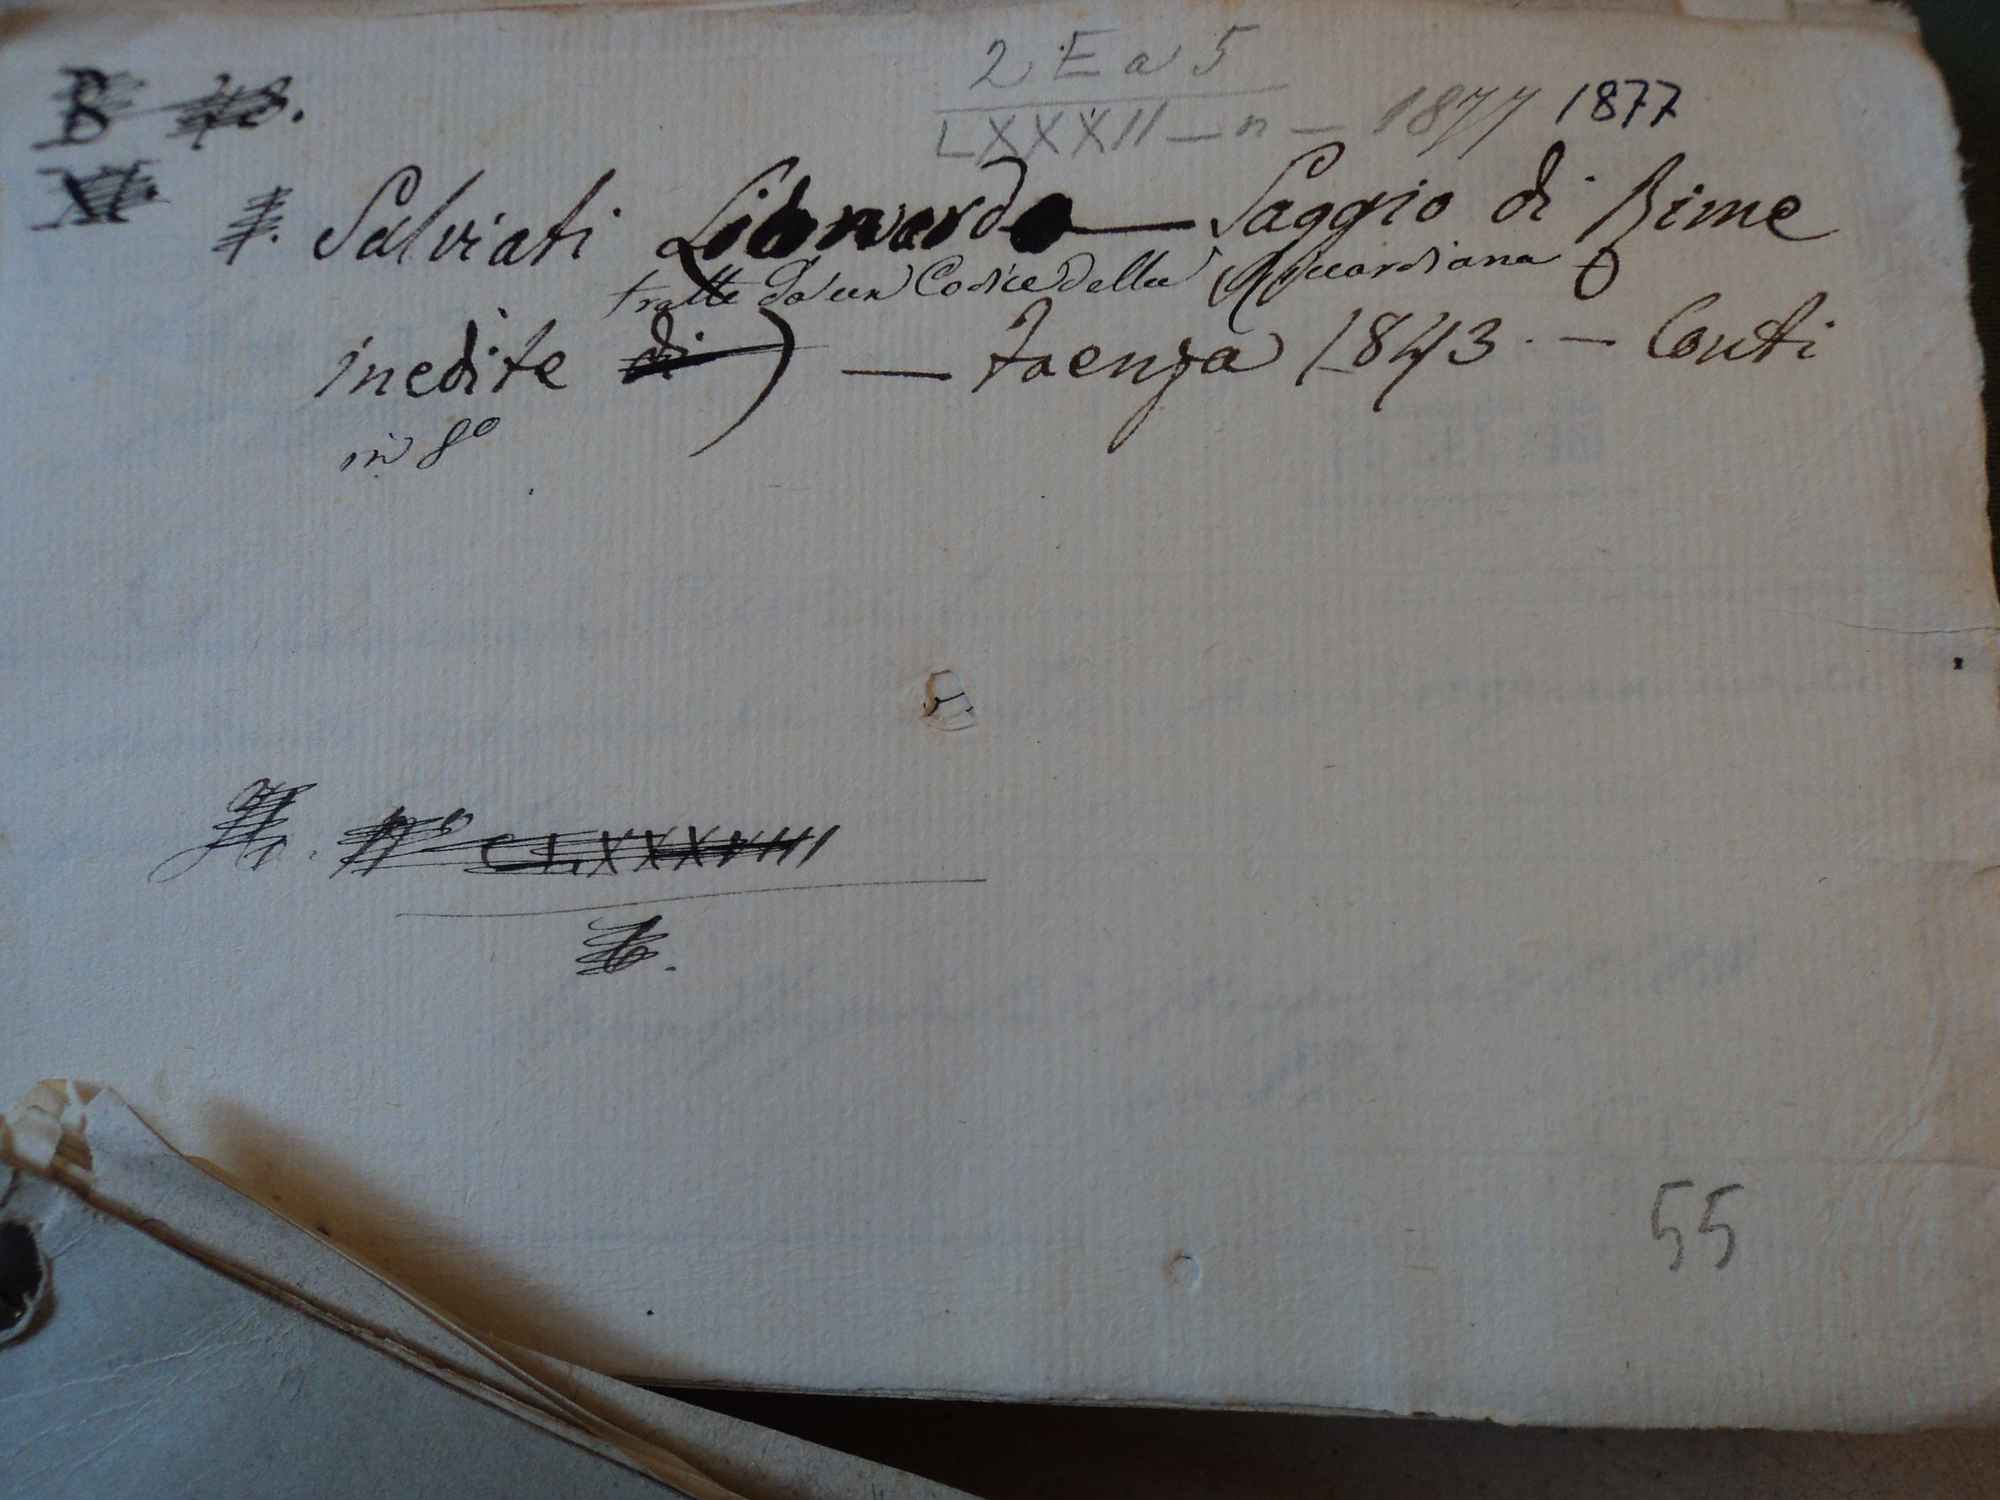 2 E a 5
LXXXII — n — 1877 1877
B
XI.
Salviati Lionardo — Saggio di Rime
tratte da un Codice della Riccardiana
inedite di) — Faenza 1843. — Conti
in 8º
Nº CLXXXVIII
6.
55